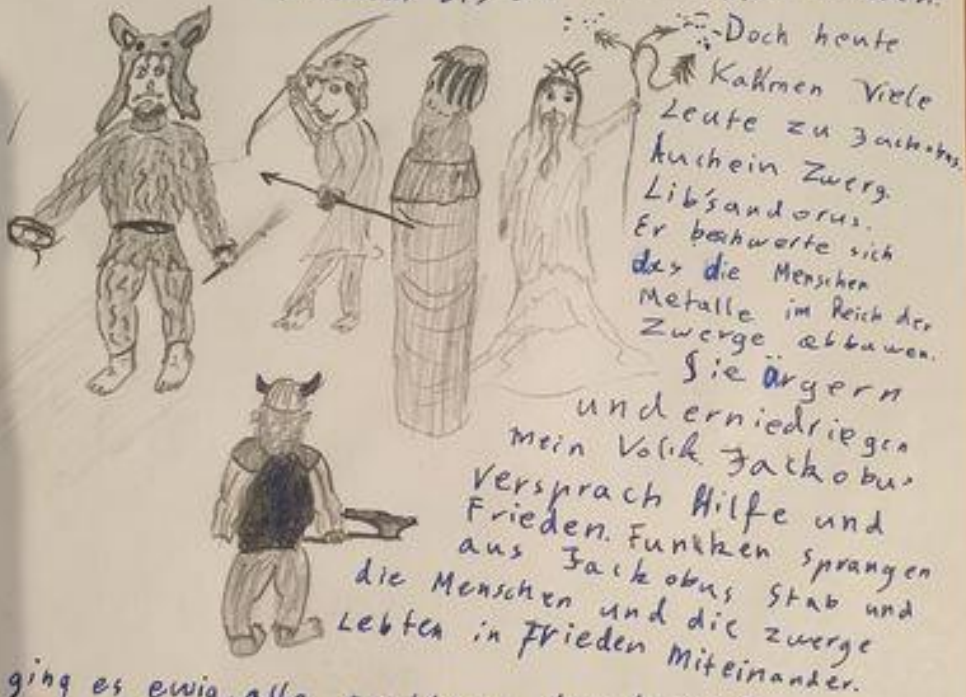 Doch heute
Kahmen viele
Leute zu Jackobus.
Auchein Zwerg.
Lib'sandorus.
Er beshwerte sich
das die Menschen
Metalle im Reich der
Zwerge abbauen.
Sie ärgern
und erniedriegen
mein Volk. Jackobus
versprach Hilfe und
Frieden. Funken sprangen
aus Jackobus Stab und
die Menschen und die zwerge
Lebten in Frieden Miteinander.
ging es ewig alle